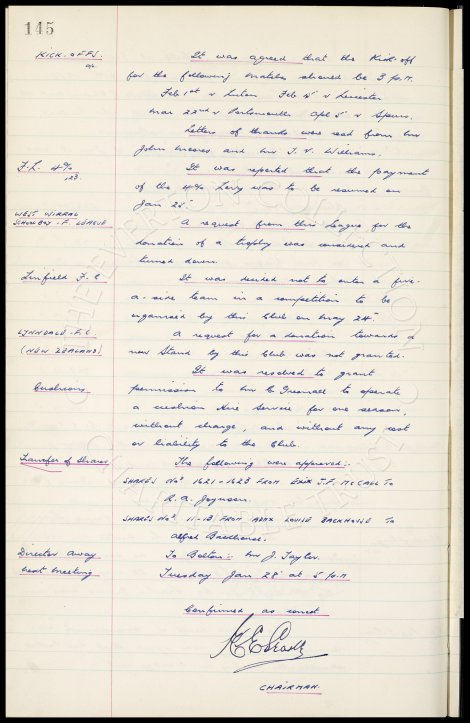 145
KICK-OFFS.
It was agreed that the Kick-off
for the following matches should be 3 p.m.
Feb 1st v Luton Feb 15 v Leicester
Mar 22nd v Portsmouth Apl 5 v Spurs.
Letters of thanks were read from Mr
John Moores and Mr T. V. Williams.
F.L. 4%
123
It was reported that the payment
of the 4% Levy was to be resumed on
Jan 25
WEST WIRRAL
SCHOOLBOY. F. LEAGUE
A request from this League for the
donation of a trophy was considered and
turned down.
Linfield F.C
It was decided not to enter a five-
a-side team in a competition to be
organised by this Club on May 24
LYNNDALE. F.C.
(NEW ZEALAND)
A request for a donation towards a
new Stand by this Club was not granted.
Cushions
It was resolved to grant
permission to Mr C to operate
a cushion Hire Service for one season,
without charge, and without any cost
or liability to the Club.
Transfer of Shares
The following were approved:-
SHARES Nos 1621-1623 FROM EXIX J.F. McCALL TO
R. A. Joynson.
SHARES Nos 11-13 FROM ADMX LOUISE BACKHOUSE TO
Alfred Backhouse.
Director away
next meeting
To Bolton:- Mr J. Taylor.
Tuesday Jan 28 at 5 p.m
Confirmed as correct
CHAIRMAN.
THE EVERTON COLLECTION
CHARITABLE TRUST